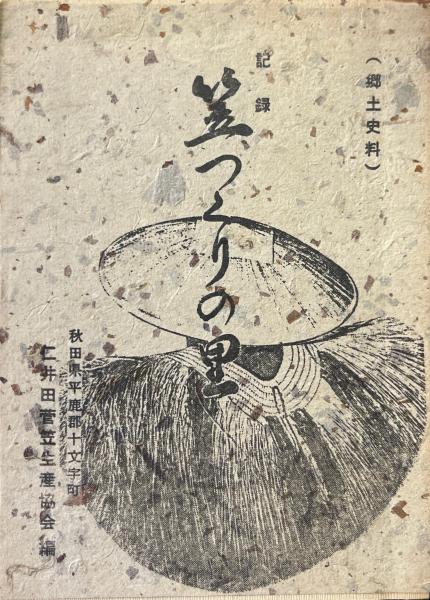 (郷土史料)
記録
笠つくりの里
秋田県平鹿郡十文字町
仁井田菅笠生産協会編